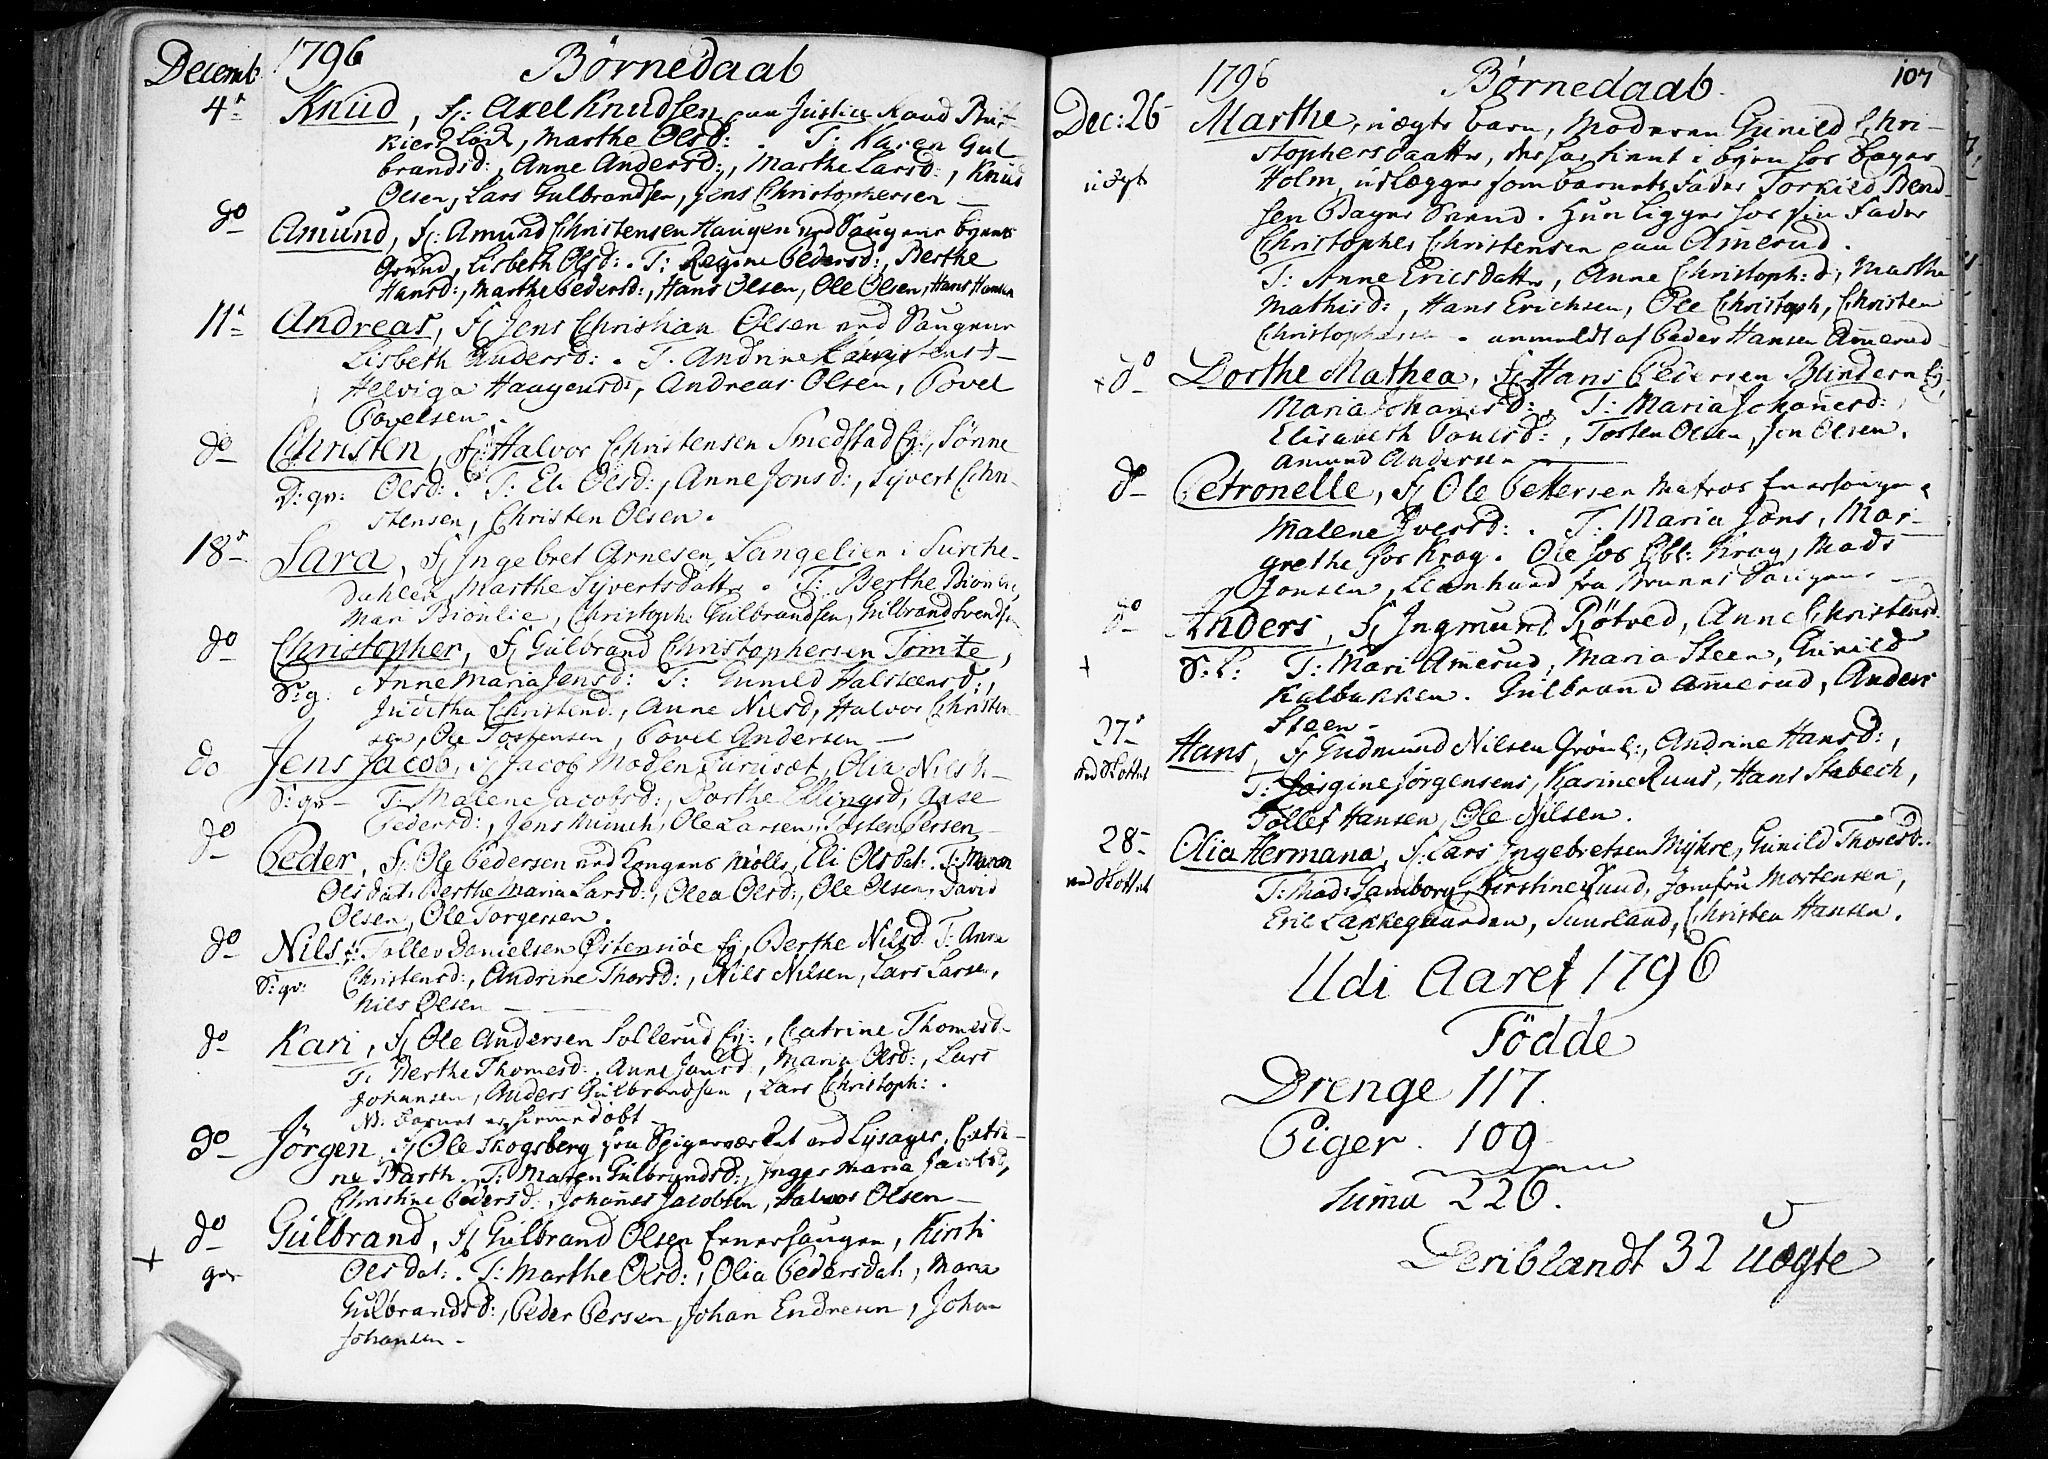 Decemb. 1796 Børnedaab
4de Knud, F: Axel Knudsen paa Justice Raad
Marthe Olsd: . T: Karen Gul
brandsd:, Anne Andersd:, Marthe Larsd:, Knud
Olsen, Lars Gulbrandsen, Jens Christophersen —
do Amund, F: Amund Christensen Haugen ved Saugene Byens
Grund, Lisbeth Olsd: . T: Regine Pedersd:, Berthe
Hansd:, Marthe Pedersd:, Hans Olsen, Ole Olsen, Hans Hansen
11te Andreas, F: Jens Christian Olsen ved Saugene
Lisbeth Andersd: . T: Andrine
Helviga Haagensd:, Andreas Olsen, Povel
Povelsen.
do Christen, F: Halvor Christensen Smedstad Ej:, Sønne
D: qv: Olsd: . T: Eli Olsd:, Anne Jonsd:, Syvert Chri-
stensen, Christen Olsen.
18de Sara, F: Ingebret Arnesen, Langelien i Sørche-
dahlen, Marthe Syvertsdatter . T: Berthe
Mari Biønlie, Christoph: Gulbrandsen, Gulbrand Svends
do Christopher, F: Gulbrand Christophersen Tomte,
S: q. Anne Maria Jensd: T: Gunild Halsteensd:,
Juditha Christend., Anne Nilsd, Halvor Christen
sen, Ole Tostensen, Povel Andersen —
do Jens Jacob, F: Jacob Madsen Furuset, Olia Nilsd. —
S: qv — T: Malene Jacobsd:, Dorthe Ellingsd, Aase
Pedersd:, Jens Munch, Ole Larsen, Tosten Persen —
do Peder, F: Ole Pedersen ved Kongens Mølle, Eli Olsdat. T: Maren
Olsdat: Berthe Maria Larsd:, Olea Olsd:, Ole Olsen, David
Olsen, Ole Torgersen.
do Nils F: Tollev Danielsen Østensiøe Ej, Berthe Nilsd. T: Anne
S: qv: Christensd:, Andrine Thorsd:, Nils Nilsen, Lars Larsen,
Nils Olsen —
do Kari, F: Ole Andersen Sollerud Ej:, Catrine Thomesd —
T: Berthe Thomesd:, Anne Jansd, Maria Olsd:, Lars
Johansen, Anders Gulbrandsen, Lars Christoph: .
NB: Barnet er hjemmedøbt
do Jörgen, F: Ole Skogsberg fra Spigerværket ved Lysager, Catri-
ne Barth. T: Maren Gulbrandsd:, Inger Maria
Christine Pedersd:, Johannes Jacobsen, Halvor Olsen —
do Gulbrand, F: Gulbrand Olsen Ennersaugen, Kirsti
+ Olsdat: . T: Marthe Olsd:, Olia Pedersdat:, Maria
Gulbrandsd:, Peder Persen, Johan Endresen, Johan
Johansen —
1796 Børnedaab. 107
Dec: 26 Marthe, uægte barn, Moderen Gunild Chri-
stophersdaatter, der har tient i byen hos Bager
uægte Holm, udlægger som barnets Fader Torkild Bend-
sen Bager Svend. Hun ligger hos sin Fader
Christopher Christensen paa Amerud.
T: Anne Ericsdatter, Anne Christoph: d:, Marthe
Mathisd:, Hans Erichsen, Ole Christoph, Christen
Christophersen . anmeldt af Peder Hansen Amerud —
+ do Dorthe Mathea, F: Hans Pedersen Blindern Ej.
Maria Johanesd:, T: Maria Johanesd:
Elisabeth Povelsd:, Tosten Olsen, Jon Olsen,
Amund Andersen —
do Petronelle, F: Ole Pettersen Matros Ennersaugen,
Malene Iversd: . T: Maria Jons, Mar-
grethe hos Krag. Ole hos Obt: Krag, Mads
Jonsen, Leonhard fra Saugene —
do Anders, F: Ingmund Rötved, Anne Christensd.
+ S: L: T: Mari Amerud, Maria Steen, Gunild
Kalbakken. Gulbrand Amerud, Anders
Steen —
27de Hans, F: Gudmund Nilsen Grønl:, Andrine Hansd:,
ved Slottet T: Jørgine Jørgensens, Karine Ruus, Hans Stabech,
Tollef Hansen, Ole Nilsen.
28 — Olia Hermana, F: Lars Ingebretsen Myhre, Gunild Thoresd..
ved Slottet T: Mad: Samborg, Kirstine Lund, Jomfru Mortensen,
Eric Lakkegaarden, Suurland, Christen Hansen.
Udi Aaret 1796
Födde
Drenge 117.
Piger. 109
Suma 226.
Deriblandt 32 Uægte